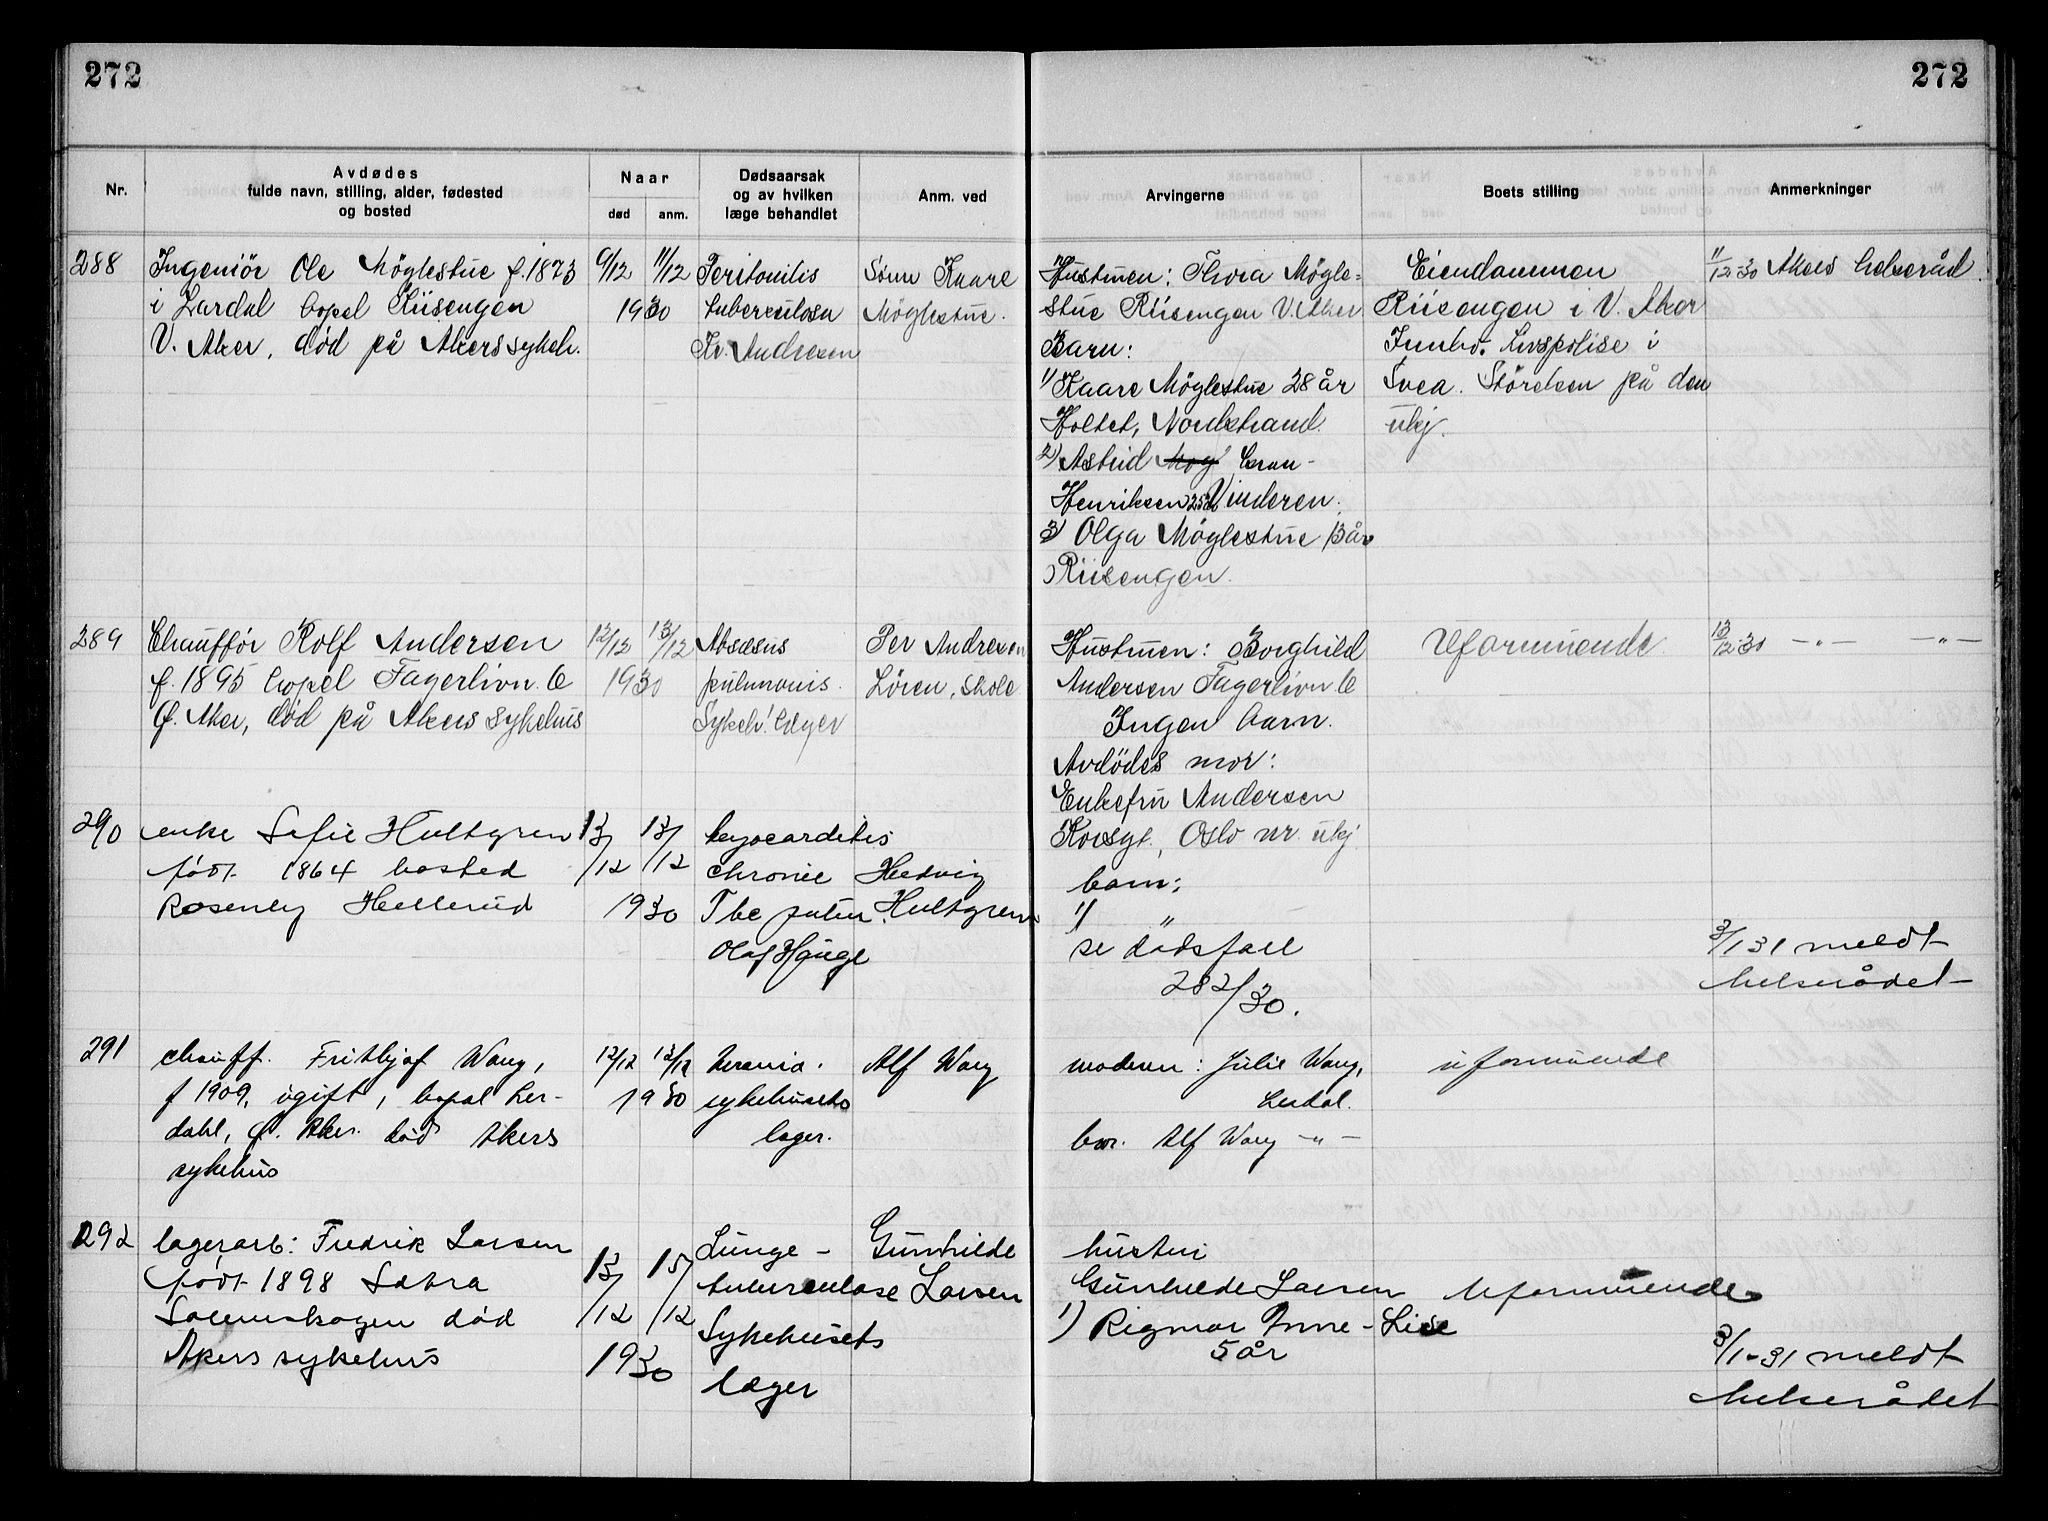 272
272
Nr.
Avdødes
fulde navn, stilling, alder, fødested
og bosted
Naar
død
anm.
Dødsaarsak
og av hvilken
læge behandlet
Anm. ved
Arvingerne
Boets stilling
Anmerkninger
288
Ingeniör Ole Möglestue f. 1873
i Lardal bopel Riisengen
V. Aker, död på Akers sykeh.
6/12
11/12
1930
Peritonitis
tuberculosa
Fr. Andresen
Sönn Kaare
Möglestue.
Hustruen: Thora Mögle-
stue Riisengen V. Aker
Barn:
1) Kaare Möglestue 28 år
Holtet, Nordstrand.
2) Astrid Mög Gran-
Henriksen 25 år Vinderen.
3) Olga Möglestue 13 år
Riisengen.
Eiendommen
Riisengen i V. Aker
Innbo. Livspolise i
Svea. Störelsen på den
ukj.
11/12 30 Akers helseråd
289
Chauffør Rolf Andersen
f. 1895 bopel Fagerlivn. 6
Ø. Aker, död på Akers sykehus
12/12
13/12
1930
Absesus
pulmonis.
Sykeh! læger
Per Andresen
Lören, skole
Hustruen: Borghild
Andersen Fagerlivn. 6
Ingen barn.
Avdödes mor:
Enkefru Andersen
Korsgt., Oslo nr. ukj
Uformuende
13/12 30 —"— —"—
290
enke Sofie Hultgren
født 1864 bosted
Rosenly Hellerud
13/12
13/12
1930
Myocarditis
chronic
Tbc pulm.
Olaf Hauge
Hedvig
Hultgren
barn:
1) "
se dødsfall
282/30.
3/1 31 meldt
helserådet
291
chauff. Frithjof Wang,
f 1909, ugift, bopel Ler-
dahl, Ø. Aker. död Akers
sykehus
12/12
13/12
1930
Uremia.
sykehusets
læger.
Alf Wang
moderen: Julie Wang,
Lerdal.
bror. Alf Wang —"—
uformuende
292
lagerarb: Fredrik Larsen
født 1898 Sætra
Solemskogen död
Akers sykehus
13/12
15/12
1930
Lunge-
tuberculose
Sykehusets
læger
Gunhilde
Larsen
hustru
Gunhilde Larsen
1) Rigmor Anne-Lise
5 år
Uformuende
3/1-31 meldt
helserådet